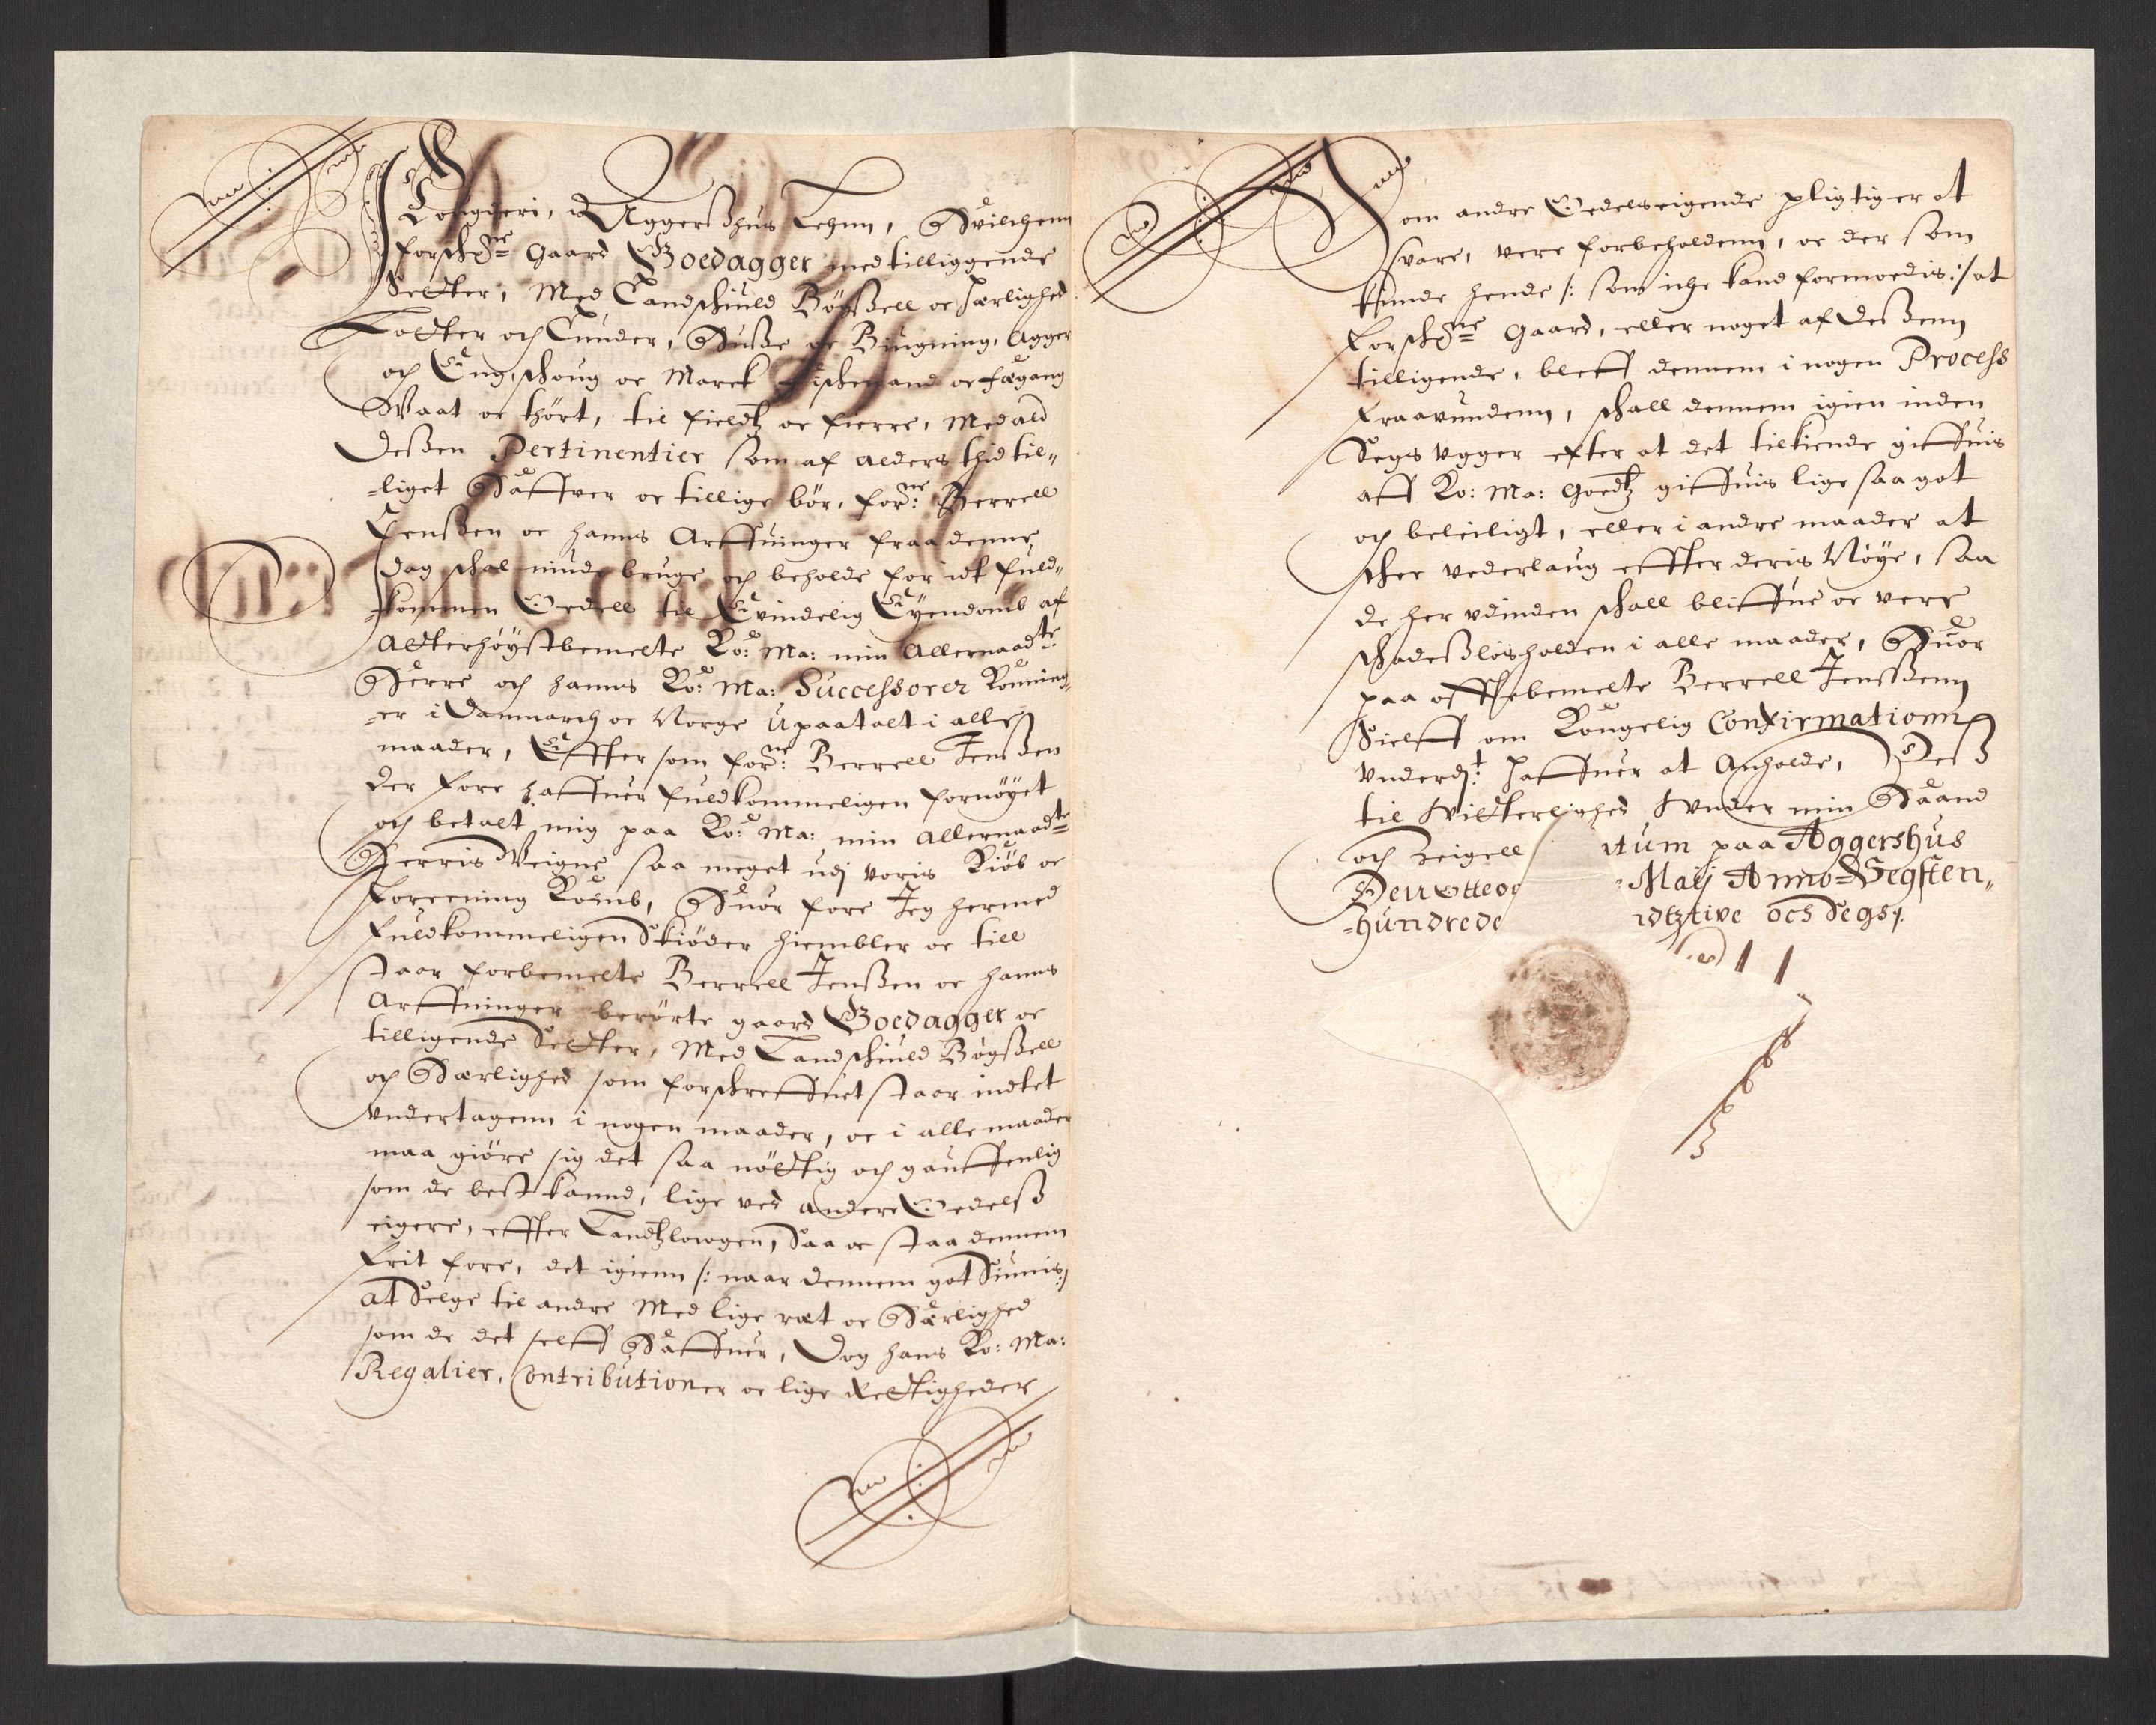 Kongdæri, i Aggershus Lehnn, Huilchenn
forschne Gaard Boedagger med tilliggende
Sedter, Med Landschiuld Bögßell oc herlighed
Lodter och Lunder, Huße oc Biugning, Agger
och Eng, schoug oc Marck fischeuand oc fægang
Waat oc thört, til fieldtz oc fierre, Med ald
Deßen Pertinentier som af Alders thid til„
„liget Haffver oc tillige bör, forne: Berrell
Jenßen oc hanns Arffuinger fraa denne
dag schal niude bruge och beholde for idt fuld„
„kommen Oedell til Evindelig Eyendomb af
Aldterhöystbemelte Ko: Ma: min Allernaadte:
Herre och hanns Ko: Ma: Successorer Konning„
„er i Danmarch oc Norge Upaatalt i alle
maader, Effter som forne: Berrell Jenßen
Der fore haffuer fuldkommeligen fornöyet
och betalt mig paa Ko: Ma: min Allernaadte
Herris Weigne saa meget udj voris Kiöb oc
Foreening Komb, Huor fore Jeg hermed
fuldkommeligen Skiöder hiembler oc till
staar forbemelte Berrell Jenßen oc hanns
Arffuinger berörte gaard Boedagger oc
tilligende Sedter, Med Landschiuld Bögßell
och Herlighed som forschreffuet staar indtet
vndertagenn i nogen maader, oc i alle maader
maa giöre sig det saa nödtig och gauffenlig
som de best kannd, lige ved andere Oedelß
eigere, effter Landtzlowgen, Saa oc staa dennem
frit fore, det igienn /: naar dennem got Siunis :/
At Selge til andre Med lige ræt oc Herlighed
som de det selff Haffuer, Dog hans Ko: Ma:
Regalier, Contributioner oc lige Redtigheder
Som andre Oedelseigende pligtig er at
svare, vere forbeholdenn, oc der som
kunde hende /: som iche kand formoedis :/ at
forschne Gaard, eller noget af Deßenn
tilligende, bleff dennem i nogen Process
fraavundenn, schall dennem igien inden
Segs Ugger efter at det tilkiende giffuis
aff Ko: Ma: Goedtz giffuis lige saa got
och beleiligt, eller i andre maader at
schee vederlaug effter deris Nöye, saa
de her vdinden schall bliffue oc vere
schadeßlösholden i alle maader, Huor
paa offtebemelte Berrell Jenßenn
Sielff om Kongelig Confirmationn
Underdt: haffuer at Anholde, Deß
til Vidterlighed Under min Haand
och Zeigell tum paa Aggershus
Den Otteo Maij Anno Segsten„
„hundrede dtztive och Segs/.